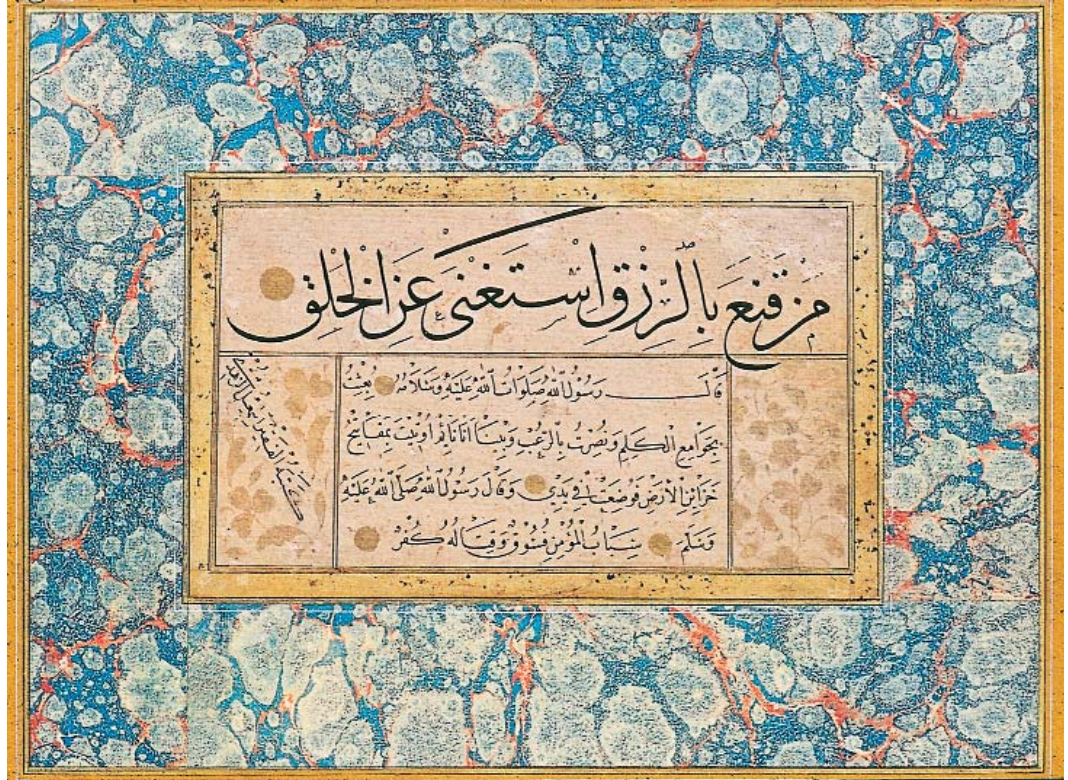 من قنع بالرزق استغنى عن الخلق
قال رسول الله صلوات الله عليه وسلامه بعثت
بجوامع الكلم ونصرت بالرعب وبينا انا نائم اوتيت بمفاتيح
خزائن الارض فوضعت في يدي وقال رسول الله صلى الله عليه
وسلم سباب المؤمن فسوق وقتاله كفر
كتبه الفقير اسمعيل الزهدي